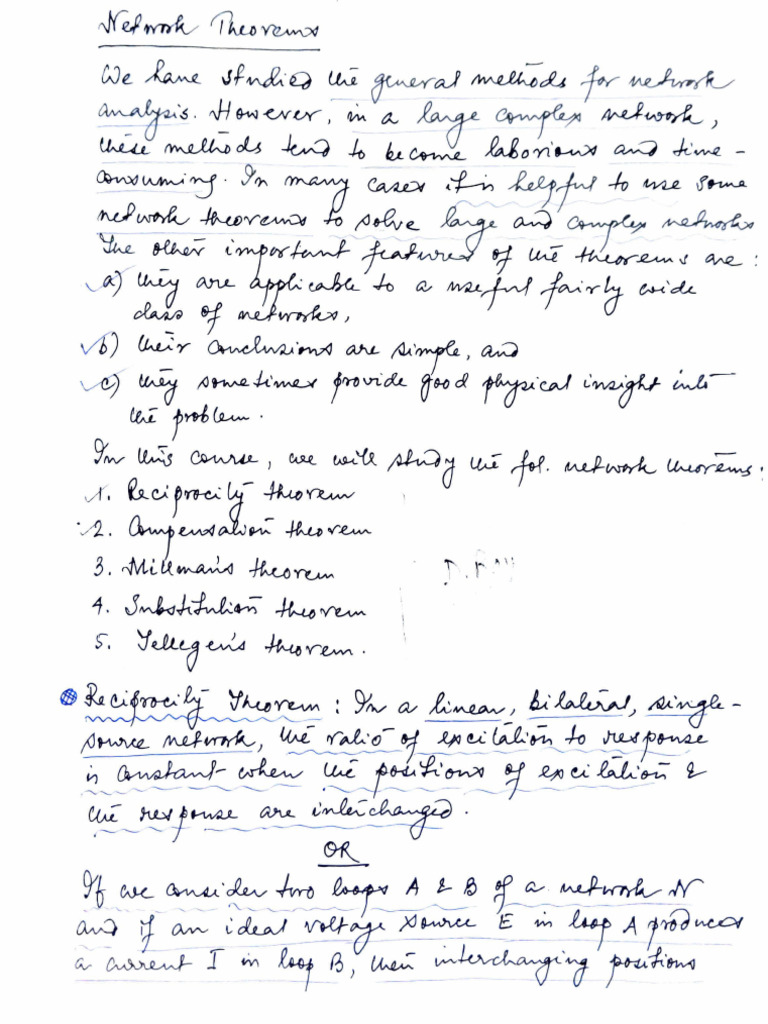 Network Theorems
We have studied the general methods for network
analysis. However, in a large complex network,
these methods tend to become laborious and time-
consuming. In many cases it is helpful to use some
network theorems to solve large and complex networks
The other important features of the theorems are:
a) they are applicable to a useful fairly wide
class of networks,
b) their conclusions are simple, and
c) they sometimes provide good physical insight into
the problem.
In this course, we will study the fol. network theorems:
1. Reciprocity theorem
2. Compensation theorem
3. Millman's theorem
4. Substitution theorem
5. Tellegen's theorem.
Reciprocity Theorem: In a linear, bilateral, single-
source network, the ratio of excitation to response
is constant when the positions of excitation &
the response are interchanged.
OR
If we consider two loops A & B of a network N
and if an ideal voltage source E in loop A produces
a current I in loop B, then interchanging positions